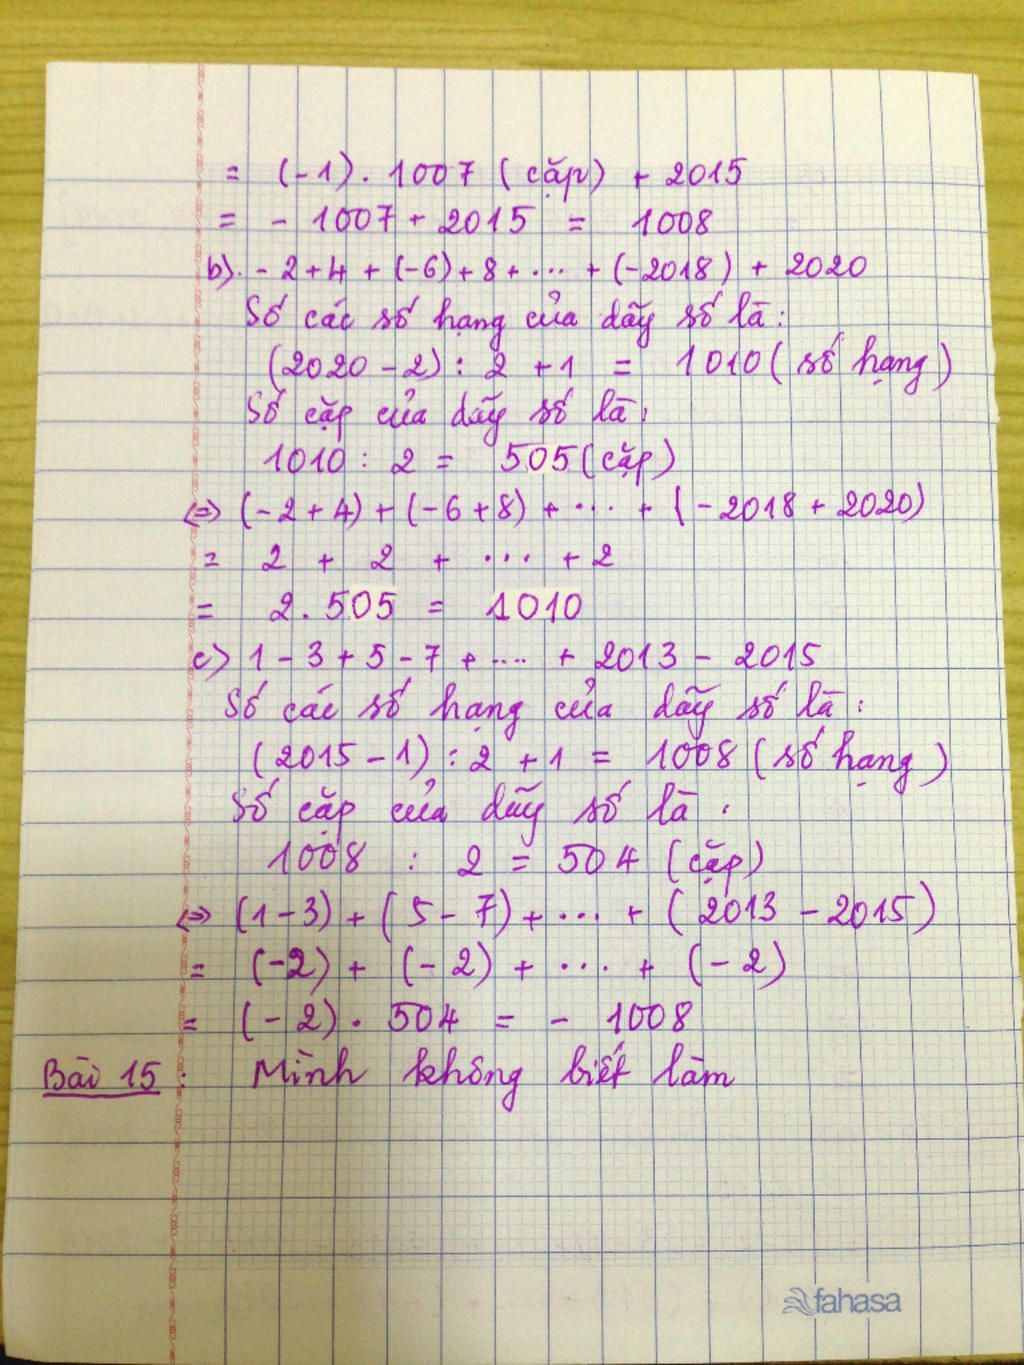 = (-1). 1007 (cặp) + 2015
= - 1007 + 2015 = 1008
b). - 2 + 4 + (-6) + 8 + ... + (-2018) + 2020
Số các số hạng của dãy số là :
(2020 - 2) : 2 + 1 = 1010 ( số hạng )
Số cặp của dãy số là :
1010 : 2 = 505 (cặp)
⇔ (-2 + 4) + (-6 + 8) + .... + ( - 2018 + 2020)
= 2 + 2 + ... + 2
= 2. 505 = 1010
c) 1 - 3 + 5 - 7 + .... + 2013 - 2015
Số các số hạng của dãy số là :
(2015 - 1) : 2 + 1 = 1008 ( số hạng )
Số cặp của dãy số là :
1008 : 2 = 504 (cặp)
⇔ (1 - 3) + ( 5 - 7) + ... + ( 2013 - 2015)
= (-2) + (- 2) + ... + (- 2)
= (- 2). 504 = - 1008
Bài 15 : Mình không biết làm
fahasa